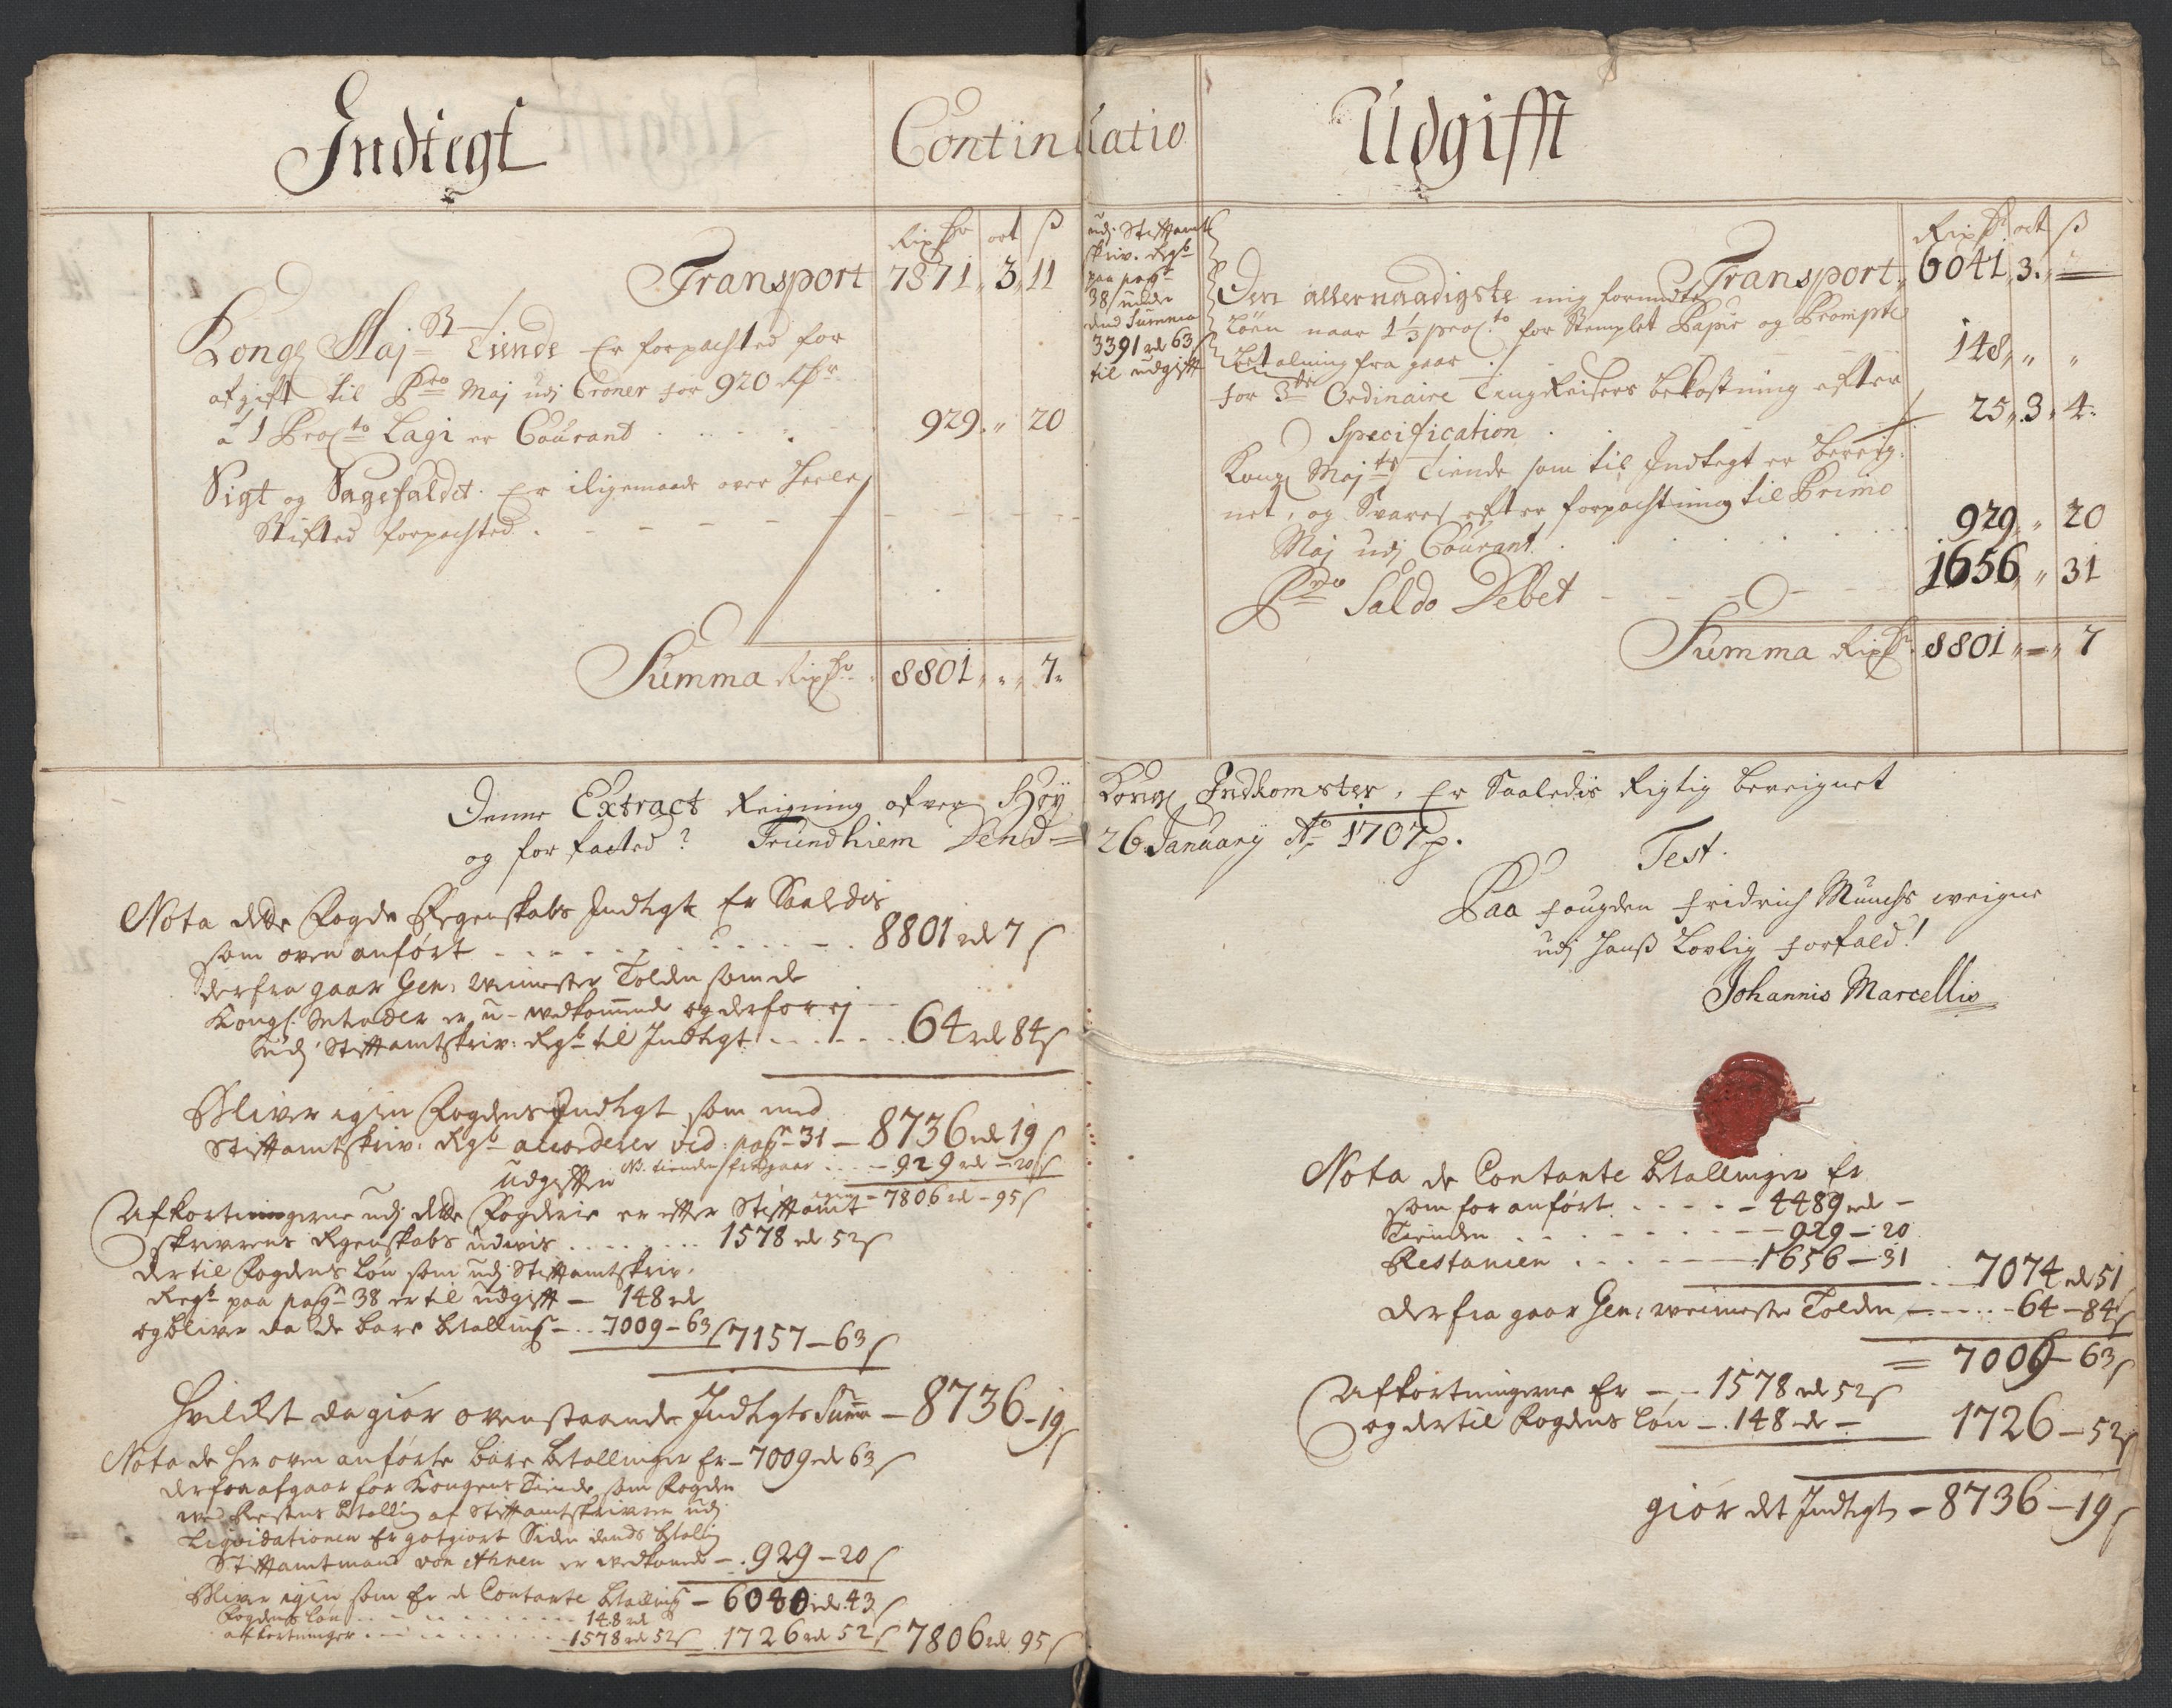 Indtegt
Continuatio
Udgifft
Rixdr ort ß
Transport 7871 „ 3 „ 11
Kongl Maj st Tiende Er forpachted for
afgift til Pmo Maj udj Croner for 920 Rdr
a 1 Procto Lagi er Courant 929 „ „ 20
Sigt og Sagefaldet Er iligemaade over heele
Stifted forpachted
Summa Rixdr 8801 „ „ 7
udj Stiftamt
skriv. Regb
paa pagn
38 under
dend Summa
3391 rd 63 s
til udgift
Rixdr ort ß
Transport 6041 „ 3 „ —
Den allernaadigste mig forundte
Løen naar 1 1/3 procto for Stemplet Papir og Prompte
betalning fra gaar 148 „ „ „
for 3de Ordinaire Tingreisers bekostning efter
Specification 25 „ 3 „ 4
Kongl Maj ts Tiende som til Indtegt er bereig-
net, og Svares efter forpachtning til Primo
Maj udj Courant 929 „ „ 20
Pro Saldo Debet 1656 „ „ 31
Summa Rixdr 8801 „ — „ 7
Denne Extract Reigning ofver Høy Kongl Indkomster, Er Saaledis Rigtig bereignet
og forfacted? Trundhiem Dend 26 January Ao 1707 p.
Test.
Paa fougden Fridrich Munchs weigne
udj hanß Lovlig forfald!
Johannis Marcellis
Nota dette Fogde Regenskabs Indtegt Er Saaledis
som oven anført 8801 rd 7 s
derfra gaar Gen: Weimester Tolden som de
Kongl. er u-vedkommende og derfor ej
udj Stiftamtskriv: Regb til Indtegt 64 rd 84 s
Bliver igien Fogdens Indtegt som med
Stiftamtskriv: Regb accorderer vid: pagn 31 — 8736 rd 19 s
NB. tienden fragaar — 929 rd — 20 s
Udgiften
7806 rd — 95 s
Afkortningerne udj dette Fogderie er efter Stiftamt
skrivrens Regenskabs udvis 1578 rd 52 s
dertil Fogdens løn som udj Stiftamtskriv.
Regb paa pagn 38 er til udgift — 148 rd
og bliver da de bare betalling — 7009 — 63 s 7157 — 63 s
hvilket da giør ovenstaaende Indtegts Suma — 8736 — 19 s
Nota de her oven anførte bare betallinger Er — 7009 rd 63 s
derfra afgaar for Kongens Tiende, som Fogden
ved Restens betalling af Stiftamtskriveren udj
Liqvidationen Er gotgiort Siden dends betaling
Stiftamtmand von Ahnen er vedkommende — 929 — 20 s
Bliver igien som Er de Contante betalling — 6080 rd 43 s
Fogdens løn 148 rd
afkortninger 1578 rd 52 s 1726 rd 52 s 7806 rd 95 s
Nota de Contante betallinger Er
som for anført — 4489 rd —
Tienden — 929 — 20
Restancen — 1656 — 31 7074 rd 51
derfra gaar Gen: Weimester Tolden — 64 — 84 s
= 7009 — 63 s
Afkortningerne Er — 1578 rd 52 s
og dertil Fogdens løn — 148 rd — 1726 — 52 s
giør det Indtegt — 8736 — 19 s